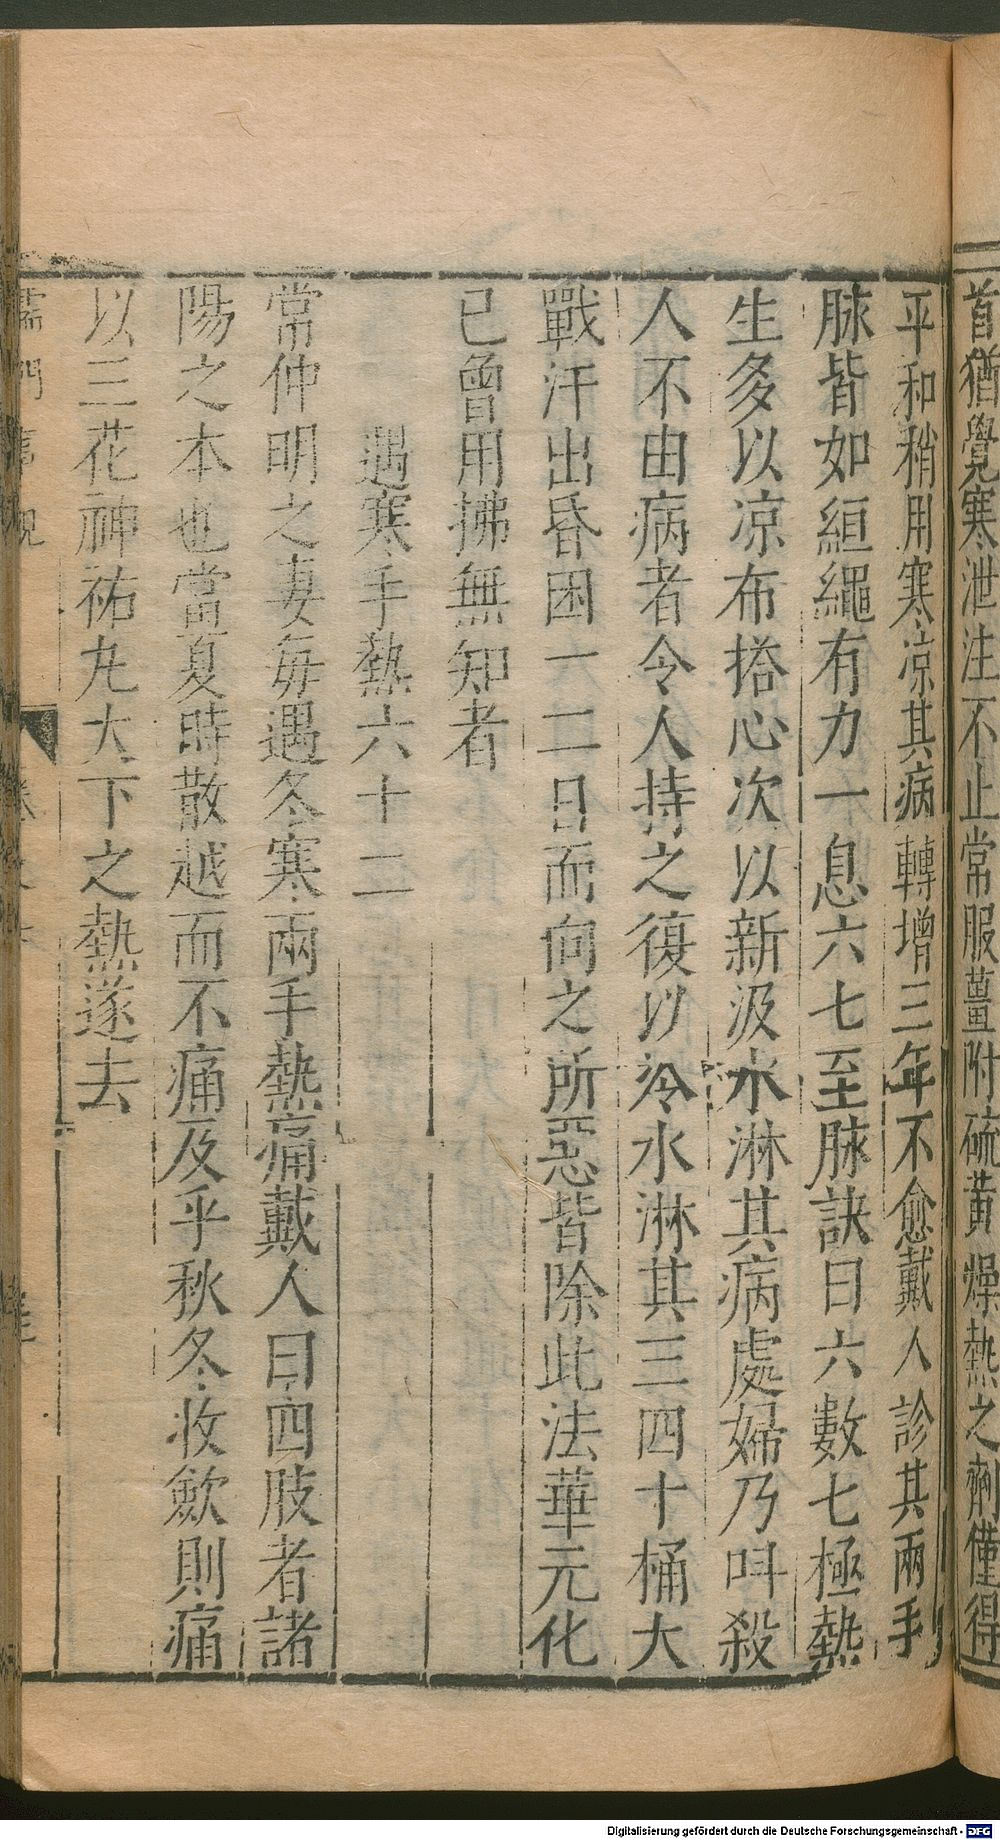 首猶覺寒泄注不止常服薑附硫黄燥熱之劑僅得
平和稍用寒凉其病轉增三年不愈戴人診其兩手
脉皆如絙繩有力一息六七至脉訣曰六數七極熱
生多以凉布搭心次以新汲水淋其病處婦乃呌殺
人不由病者令人持之復以冷水淋其三四十桶大
戰汗出昏困一二日而向之所惡皆除此法華元化
已曾用拂無知者
遇寒手熱六十二
常仲明之妻每遇冬寒兩手熱痛戴人曰四肢者諸
陽之本也當夏時散越而不痛及乎秋冬收歛則痛
以三花神祐丸大下之熱遂去
儒門
Digitalisierung gefördert durch die Deutsche Forschungsgemeinschaft - DFG